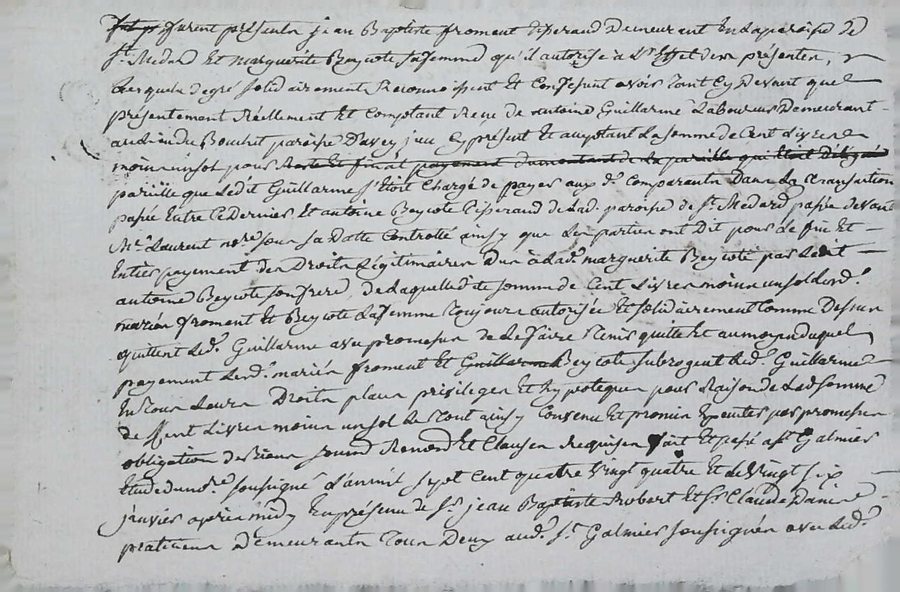 furent présents jean Baptiste froment tisserand Demeurant En la paroisse de
St. Medard Et marguerite Beycote sa femme qu'il autorise à l'Effet des présentes,
Lesquels de gré solidairement Reconnoissent Et Confessent avoir tout Cy Devant que
présentement Réellement Et Comptant Reçu de antoine Guillarme Laboureur Demeurant
au lieu du Bouchet paroisse D'avey jeu Cy présent Et acceptant La somme de Cent Livres
moins un sol pour Reste Et final payement du montant de La pareille qu'il étoit obligé
pareille que Ledit Guillarme s'Etoit Chargé de payer aux ds. Comparants Dans La transaction
passée Entre Ce dernier Et antoine Beycote tisserand de Lad. paroisse de St. Medard passée devant
Me. Laurent nore. sous sa Datte Controllé ainsy que Les parties ont Dit pour Le fin Et
Entier payement des Droits Légitimaires Dus à Lad. marguerite Beycote par Ledit
antoine Beycote son frere, de Laquelle dte somme de Cent Livres moins un sol Lesd.
mariés froment Et Beycote La femme toujours autorisée Et solidairement Comme Dessus
quittent Led. Guillarme avec promesse de Le faire tenir quitte Et au moyen duquel
payement Lesd. mariés froment Et Guillarme Beycote subrogent Led. Guillarme
En tous Leurs Droits place privileges Et hypoteques pour Raison de Lad somme
de Cent Livres moins un sol Le tout ainsy Convenu Et promis Executer par promesses
obligation de Biens soumis Renond. Et Clauses Requises fait Et passé à St Galmier
Etude du nore. soussigné L'an mil sept Cent quatre vingt quatre Et Le vingt six
janvier après midy En présence de Sr. jean Baptiste Robert Et Sr Claude Dame
praticiens Demeurants tous Deux aud. St. Galmier soussignés avec Led.